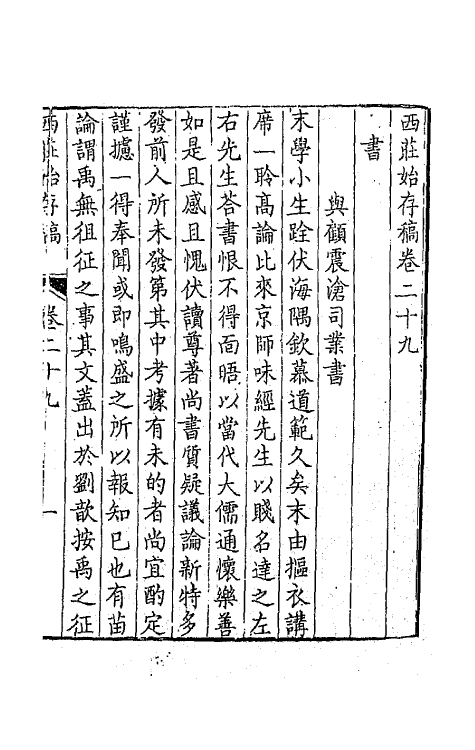 西莊始存稿卷二十九
書
與顧震滄司業書
末學小生跧伏海隅欽慕道範久矣末由摳衣講
席一聆高論比來京師味經先生以賤名達之左
右先生荅書恨不得面晤以當代大儒通懷樂善
如是且感且愧伏讀尊著尚書質疑議論新特多
發前人所未發第其中考據有未的者尚宜酌定
謹攄一得奉聞或即鳴盛之所以報知已也有苗
論謂禹無徂征之事其文蓋出於劉歆按禹之征
西莊始存稿 卷二十九 一